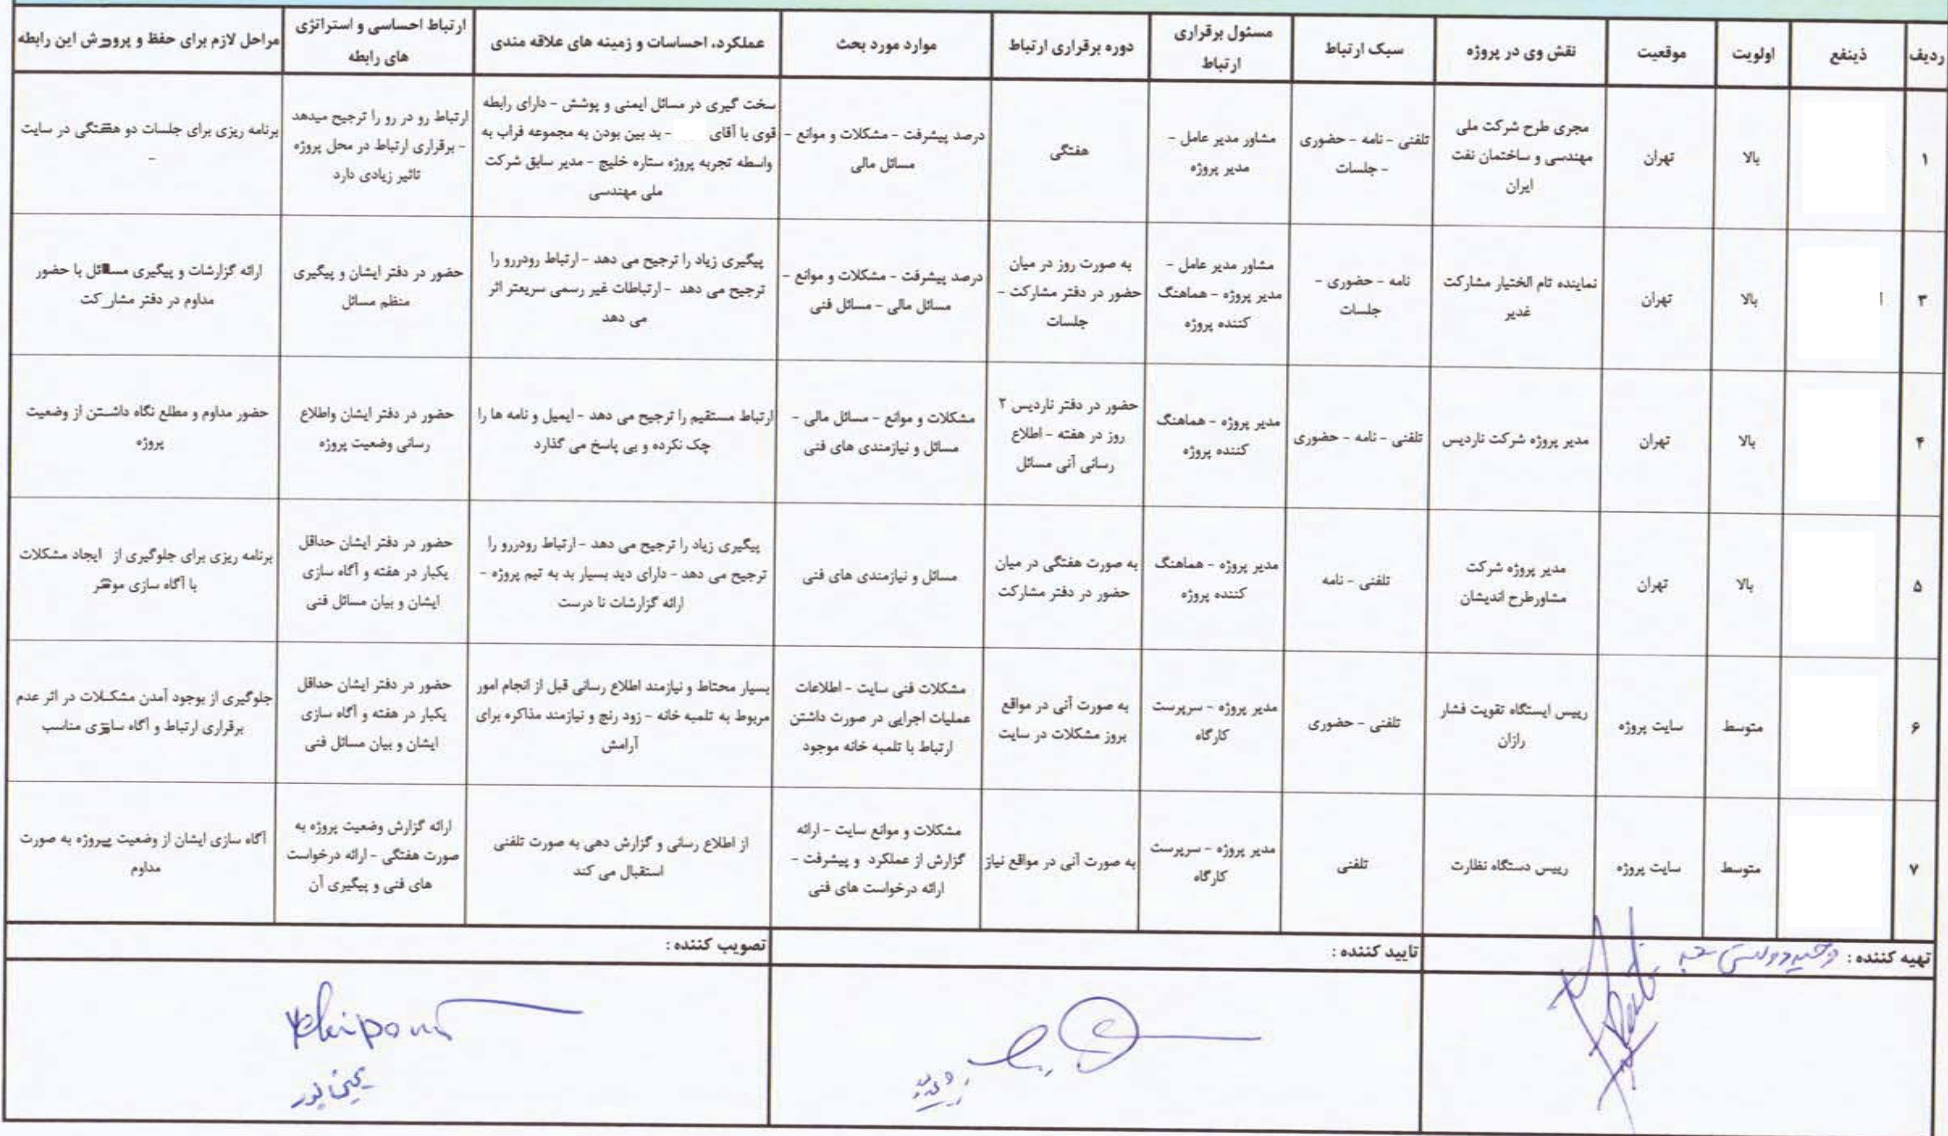 ردیف
ذینفع
اولویت
موقعیت
نقش وی در پروژه
سبک ارتباط
مسئول برقراری
ارتباط
دوره برقراری ارتباط
موارد مورد بحث
عملکرد، احساسات و زمینه های علاقه مندی
ارتباط احساسی و استراتژی
های رابطه
مراحل لازم برای حفظ و پرورش این رابطه
۱
بالا
تهران
مجری طرح شرکت ملی
مهندسی و ساختمان نفت
ایران
تلفنی - نامه - حضوری
- جلسات
مشاور مدیر عامل -
مدیر پروژه
هفتگی
درصد پیشرفت - مشکلات و موانع -
مسائل مالی
سخت گیری در مسائل ایمنی و پوشش - دارای رابطه
قوی با آقای - بد بین بودن به مجموعه فراب به
واسطه تجربه پروژه ستاره خلیج - مدیر سابق شرکت
ملی مهندسی
ارتباط رو در رو را ترجیح میدهد
- برقراری ارتباط در محل پروژه
تاثیر زیادی دارد
برنامه ریزی برای جلسات دو هفتگی در سایت
-
۳
بالا
تهران
نماینده تام الختیار مشارکت
غدیر
نامه - حضوری -
جلسات
مشاور مدیر عامل -
مدیر پروژه - هماهنگ
کننده پروژه
به صورت روز در میان
حضور در دفتر مشارکت -
جلسات
درصد پیشرفت - مشکلات و موانع -
مسائل مالی - مسائل فنی
پیگیری زیاد را ترجیح می دهد - ارتباط رودررو را
ترجیح می دهد - ارتباطات غیر رسمی سریعتر اثر
می دهد
حضور در دفتر ایشان و پیگیری
منظم مسائل
ارائه گزارشات و پیگیری مسائل با حضور
مداوم در دفتر مشارکت
۴
بالا
تهران
مدیر پروژه شرکت ناردیس
تلفنی - نامه - حضوری
مدیر پروژه - هماهنگ
کننده پروژه
حضور در دفتر ناردیس ۲
روز در هفته - اطلاع
رسانی آنی مسائل
مشکلات و موانع - مسائل مالی -
مسائل و نیازمندی های فنی
ارتباط مستقیم را ترجیح می دهد - ایمیل و نامه ها را
چک نکرده و بی پاسخ می گذارد
حضور در دفتر ایشان واطلاع
رسانی وضعیت پروژه
حضور مداوم و مطلع نگاه داشتن از وضعیت
پروژه
۵
بالا
تهران
مدیر پروژه شرکت
مشاورطرح اندیشان
تلفنی - نامه
مدیر پروژه - هماهنگ
کننده پروژه
به صورت هفتگی در میان
حضور در دفتر مشارکت
مسائل و نیازمندی های فنی
پیگیری زیاد را ترجیح می دهد - ارتباط رودررو را
ترجیح می دهد - دارای دید بسیار بد به تیم پروژه -
ارائه گزارشات نا درست
حضور در دفتر ایشان حداقل
یکبار در هفته و آگاه سازی
ایشان و بیان مسائل فنی
برنامه ریزی برای جلوگیری از ایجاد مشکلات
با آگاه سازی موثر
۶
متوسط
سایت پروژه
رییس ایستگاه تقویت فشار
رازان
تلفنی - حضوری
مدیر پروژه - سرپرست
کارگاه
به صورت آنی در مواقع
بروز مشکلات در سایت
مشکلات فنی سایت - اطلاعات
عملیات اجرایی در صورت داشتن
ارتباط با تلمبه خانه موجود
بسیار محتاط و نیازمند اطلاع رسانی قبل از انجام امور
مربوط به تلمبه خانه - زود رنج و نیازمند مذاکره برای
آرامش
حضور در دفتر ایشان حداقل
یکبار در هفته و آگاه سازی
ایشان و بیان مسائل فنی
جلوگیری از بوجود آمدن مشکلات در اثر عدم
برقراری ارتباط و آگاه سازی مناسب
۷
متوسط
سایت پروژه
رییس دستگاه نظارت
تلفنی
مدیر پروژه - سرپرست
کارگاه
به صورت آنی در مواقع نیاز
مشکلات و موانع سایت - ارائه
گزارش از عملکرد و پیشرفت -
ارائه درخواست های فنی
از اطلاع رسانی و گزارش دهی به صورت تلفنی
استقبال می کند
ارائه گزارش وضعیت پروژه به
صورت هفتگی - ارائه درخواست
های فنی و پیگیری آن
آگاه سازی ایشان از وضعیت پروژه به صورت
مداوم
تهیه کننده :
تایید کننده :
تصویب کننده :
یحیی پور